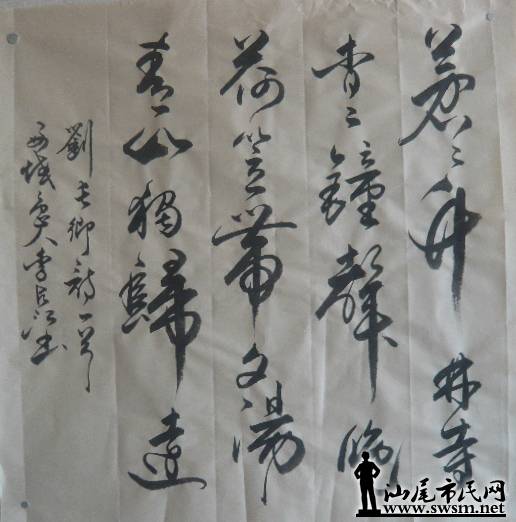 蒼々竹林寺
杳々鐘聲晚
荷笠帶夕陽
青山獨歸遠
劉長卿詩一首
城人李江書
汕尾市民网
www.swsm.net